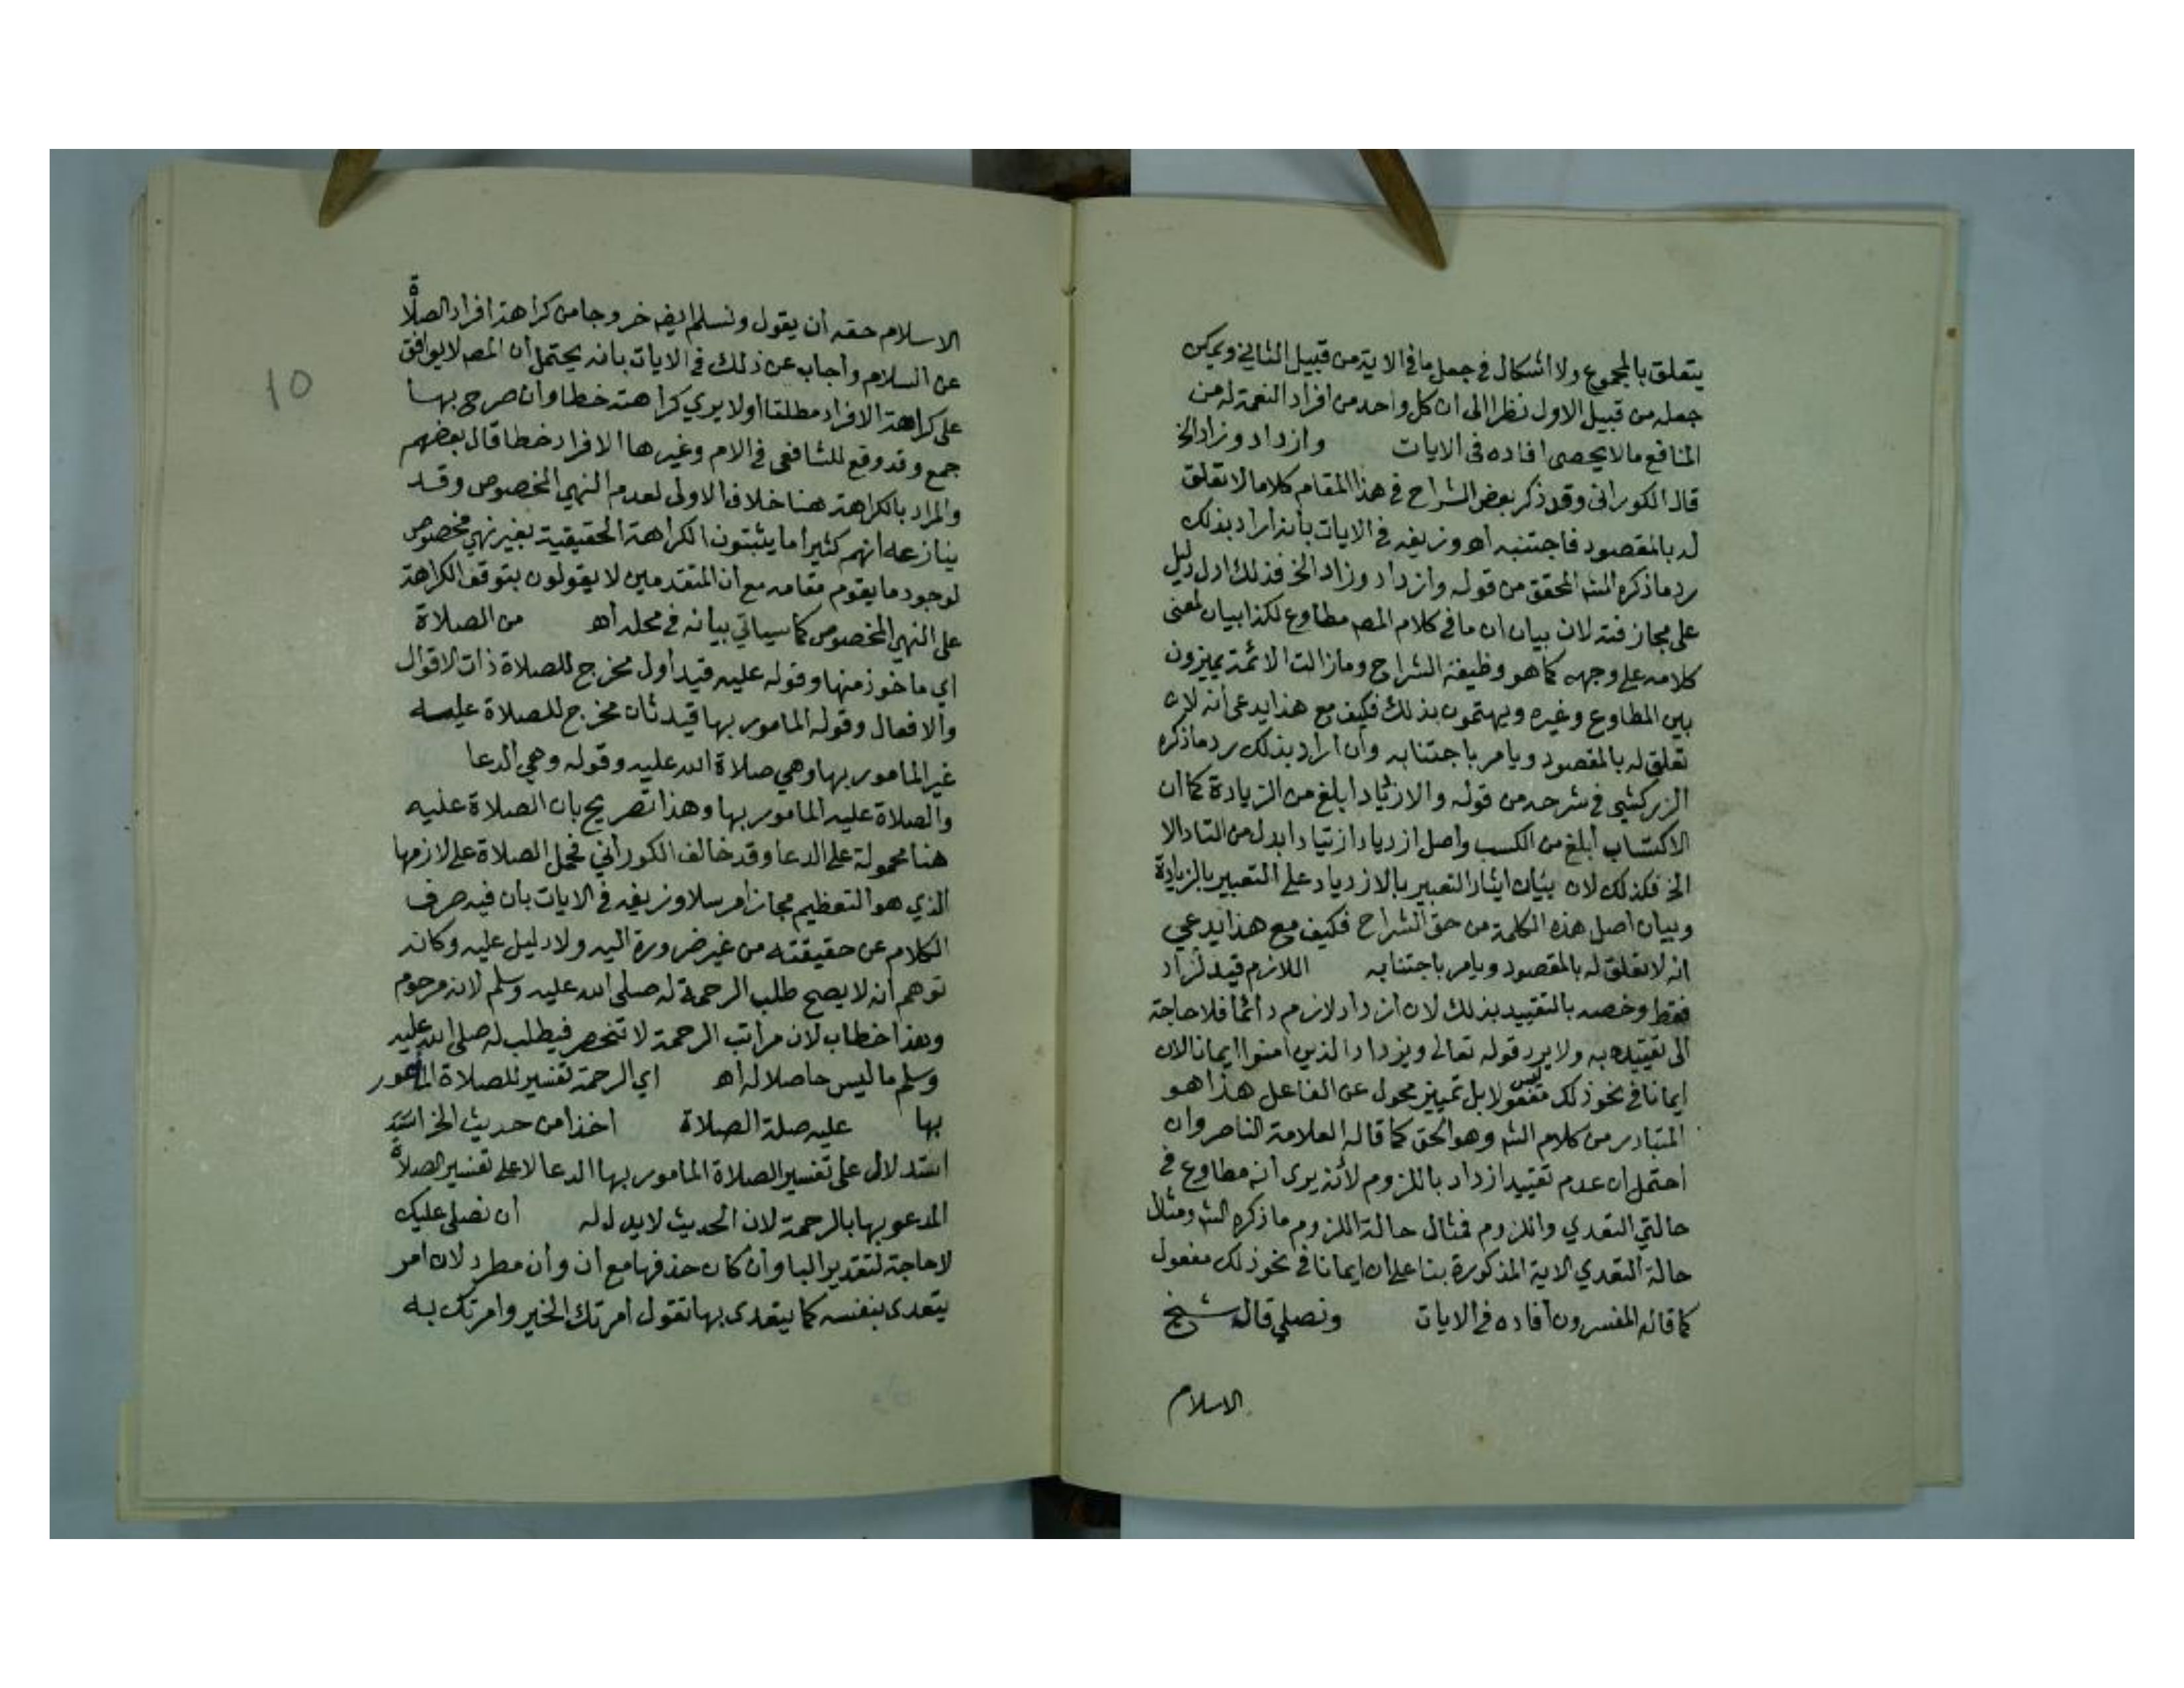 يتعلق بالمجموع ولا اشكال في جعل ما في الاية من قبيل الثاني ويمكن
جعله من قبيل الاول نظرا الى ان كل واحد من افراد النعمة له من
المنافع ما لا يحصى افاده في الايات وازداد وزاد الخ
قال الكوراني وقد ذكر بعض الشراح في هذا المقام كلاما لا تعلق
له بالمقصود فاجتنبه اهـ وزيفه في الايات بأنه أراد بذلك
رد ما ذكره الشـ المحقق من قوله وازداد وزاد الخ فذلك ادل دليل
على مجازفته لان بيان ان ما في كلام المصـ مطاوع لكذا بيان لمعنى
كلامه على وجهه كما هو وظيفة الشراح وما زالت الائمة يميزون
بين المطاوع وغيره ويهتمون بذلك فكيف مع هذا يدعى أنه لا
تعلق له بالمقصود ويامر باجتنابه وأن أراد بذلك رد ما ذكره
الزركشي في شرحه من قوله والازدياد أبلغ من الزيادة كما أن
الاكتساب أبلغ من الكسب واصل ازدياد ازتياد ابدل من التا دالا
الخ فكذلك لان بيان ايثار التعبير بالازدياد على التعبير بالزيادة
وبيان اصل هذه الكلمة من حق الشراح فكيف مع هذا يدعي
انه لا تعلق له بالمقصود ويامر باجتنابه اللازم قيد لزاد
فقط وخصه بالتقييد بذلك لان ازداد لازم دائما فلا حاجة
الى تقييده به ولا يرد قوله تعالى ويزداد الذين امنوا ايمانا لان
ايمانا في نحو ذلك ليس مفعولا بل تمييز محول عن الفاعل هذا هو
المتبادر من كلام الشـ وهو الحق كما قاله العلامة الناصر وان
احتمل ان عدم تقييد ازداد باللزوم لأنه يرى انه مطاوع في
حالتي التعدي واللزوم فمثال حالة اللزوم ما ذكره الشـ ومثال
حالة التعدي الاية المذكورة بنا على ان ايمانا في نحو ذلك مفعول
كما قاله المفسرون أفاده في الايات ونصلي قال شيخ
الاسلام
10
الاسلام حقه أن يقول ونسلم ايضـ خروجا من كراهة افراد الصلاة
عن السلام وأجاب عن ذلك في الايات بانه يحتمل أن المصـ لا يوافق
على كراهة الافراد مطلقا أو لا يري كراهته خطا وأن صرح بها
جمع وقد وقع للشافعي في الام وغيرها الافراد خطا قال بعضهم
والمراد بالكراهة هنا خلاف الاولى لعدم النهي المخصوص وقد
ينازعه انهم كثيرا ما يثبتون الكراهة الحقيقية بغير نهي مخصوص
لوجود ما يقوم مقامه مع أن المتقدمين لا يقولون بتوقف الكراهة
على النهي المخصوص كما سياتي بيانه في محله أهـ من الصلاة
اي ماخوذ منها وقوله عليه قيد اول مخرج للصلاة ذات الاقوال
والافعال وقوله المامور بها قيد ثان مخرج للصلاة عليه
غير المامور بها وهي صلاة الله عليه وقوله وهي الدعا
والصلاة عليه المامور بها وهذا تصريح بان الصلاة عليه
هنا محمولة على الدعا وقد خالف الكوراني فحمل الصلاة على لازمها
الذي هو التعظيم مجازا مرسلا وزيفه في الايات بأن فيه صرف
الكلام عن حقيقته من غير ضرورة اليه ولا دليل عليه وكانه
توهم أنه لا يصح طلب الرحمة له صلى الله عليه وسلم لانه مرحوم
وهذا خطا ب لان مراتب الرحمة لا تنحصر فيطلب له صلى الله عليه
وسلم ما ليس حاصلا له أهـ اي الرحمة تفسير للصلاة المامور
بها عليه صلة الصلاة اخذا من حديث الخ
استدلال على تفسير الصلاة المامور بها الدعا لا على تفسير الصلاة
المدعو بها بالرحمة لان الحديث لا يدل له أن نصلي عليك
لا حاجة لتقدير البا وأن كان حذفها مع أن وأن مطرد لان امر
يتعدى بنفسه كما يتعدى بها تقول أمرتك الخير وأمرتك به